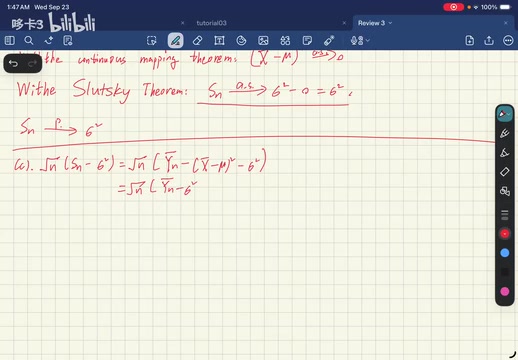 1:47 AM Wed Sep 23
100%
哆卡3 bilibili
tutorial03
Review 3
the continuous mapping theorem: (X̄ − μ) a.s.→ 0
Withe Slutsky Theorem: Sn a.s.→ 6² − 0 = 6².
Sn P.→ 6²
(c). √n (Sn − 6²) = √n (Ȳn − (X̄ − μ)² − 6²)
= √n (Ȳn − 6²